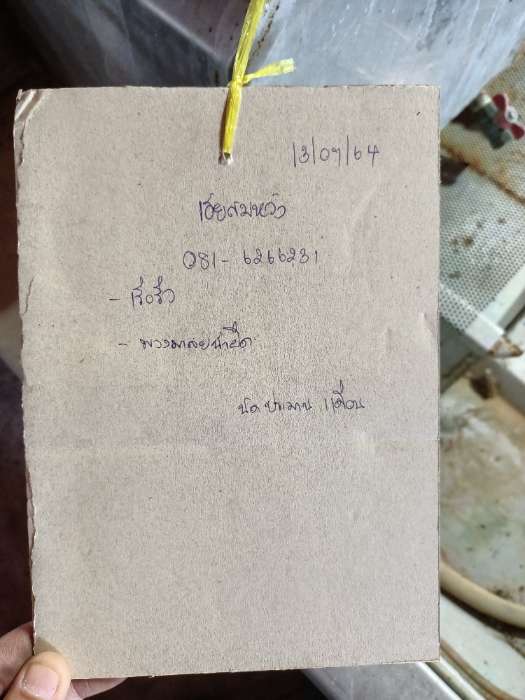 13/07/64
เฮียสมหวัง
081-6266231
- เรือรั่ว
- พวงมาลัยน้ำฝืด
นัด ประมาณ 1 เดือน